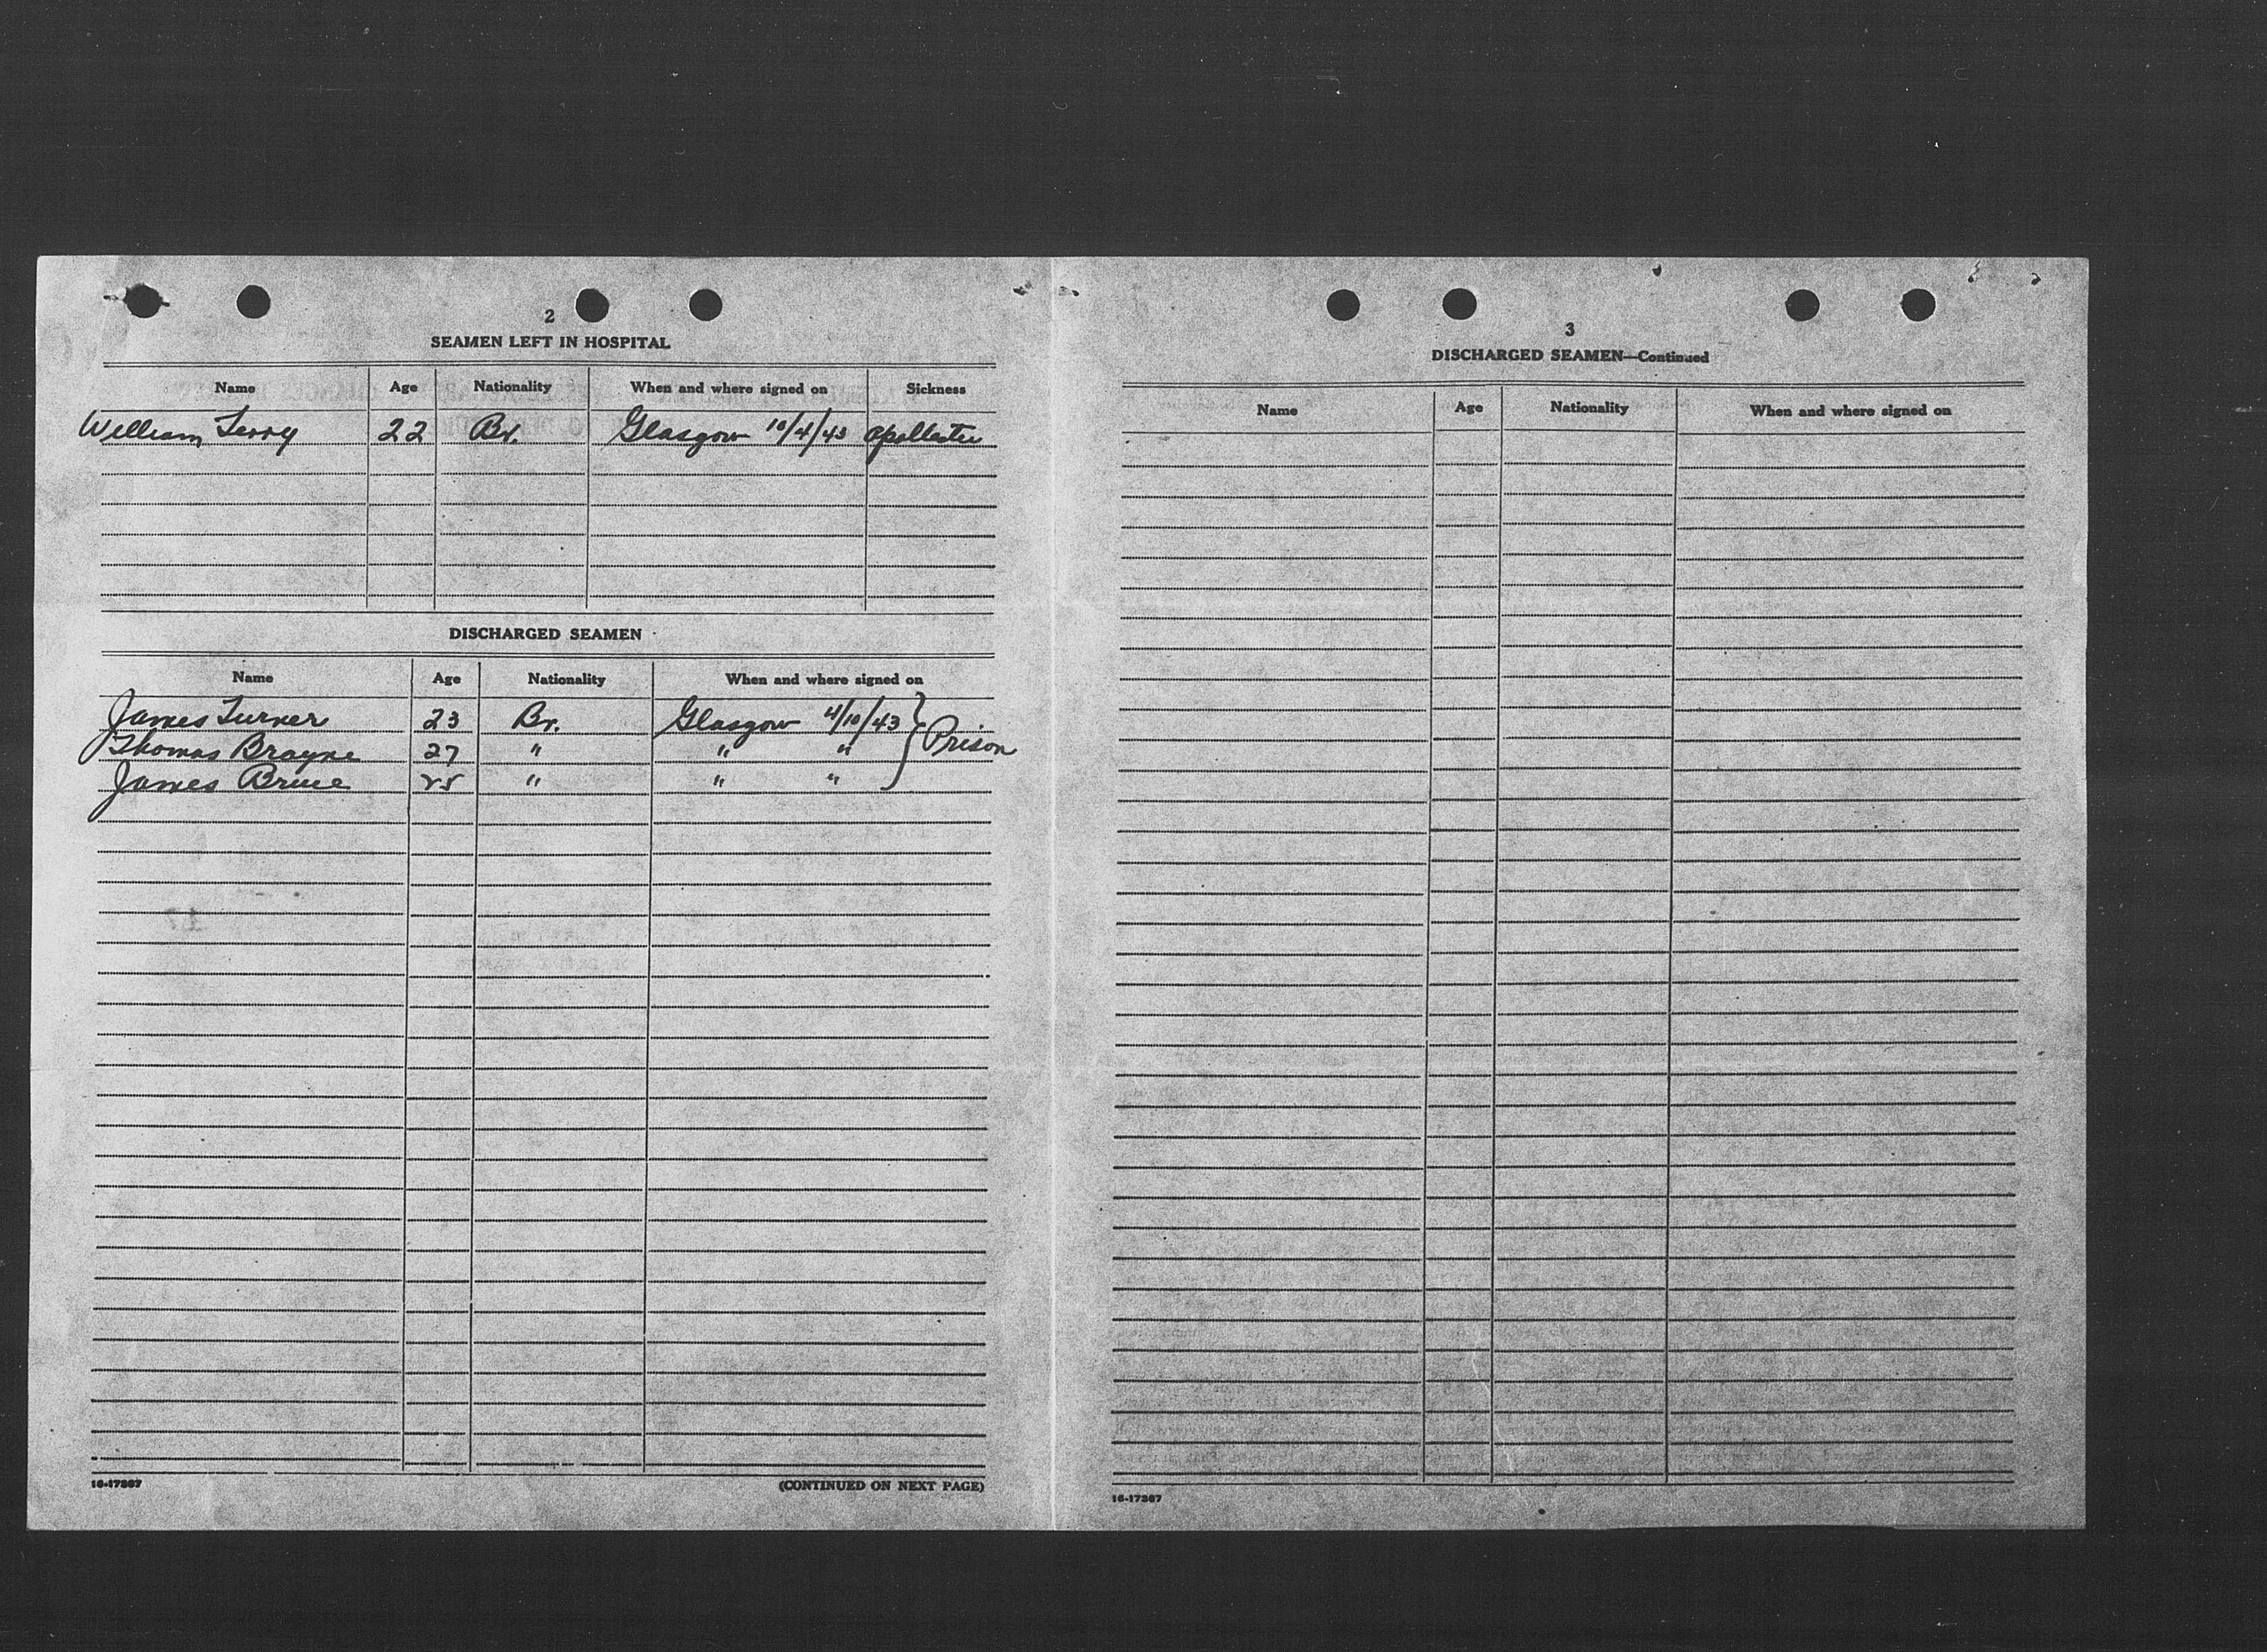 2
SEAMEN LEFT IN HOSPITAL
Name Age Nationality When and where signed on Sickness
William Terry 22 Br. Glasgow 10/4/43
DISCHARGED SEAMEN
Name Age Nationality When and where signed on
James Turner 23 Br. Glasgow 4/10/43 } Prison
Thomas Brayne 27 " " "
James Bruce 25 " " "
16-17367
(CONTINUED ON NEXT PAGE)
3
DISCHARGED SEAMEN—Continued
Name Age Nationality When and where signed on
16-17367